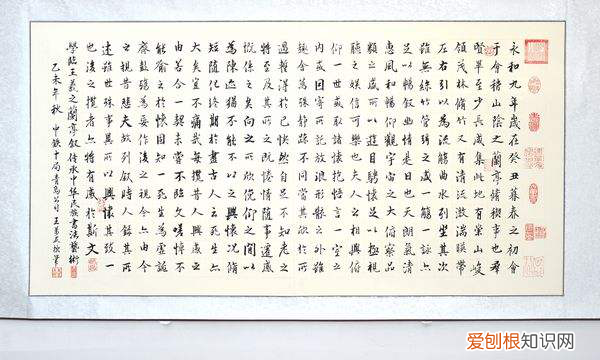 永和九年歲在癸丑暮春之初會
于會稽山陰之蘭亭脩稧事也羣
賢畢至少長咸集此地有崇山峻
領茂林脩竹又有清流激湍暎帶
左右引以為流觴曲水列坐其次
雖無絲竹管弦之盛一觴一詠亦
足以暢叙幽情是日也天朗氣清
惠風和暢仰觀宇宙之大俯察品
類之盛所以遊目騁懷足以極視
聽之娛信可樂也夫人之相與俯
仰一世或取諸懷抱悟言一室之
內或因寄所託放浪形骸之外雖
趣舍萬殊靜躁不同當其欣於所
遇暫得於己怏然自足不知老之
將至及其所之既惓情隨事遷感
慨係之矣向之所欣俛仰之間以
為陳迹猶不能不以之興懷況脩
短隨化終期於盡古人云死生亦
大矣豈不痛哉每攬昔人興感之
由若合一契未嘗不臨文嗟悼不
能喻之於懷固知一死生為虛誕齊
彭殤為妄作後之視今亦由今
之視昔悲夫故列叙時人錄其所
述雖世殊事異所以興懷其致一
也後之攬者亦將有感於斯文
學臨王羲之蘭亭叙傳承中華民族書法藝術
乙未年秋 中鐵十局青島公司王
爱刨根知识网